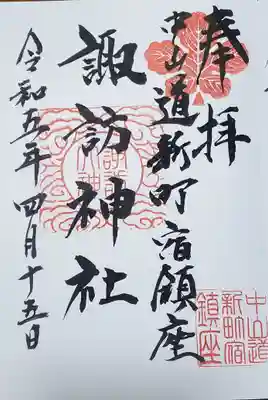 奉拝
中山道新町宿鎮座
諏訪神社
令和五年 四月十五日
中山道
新町宿
鎮座